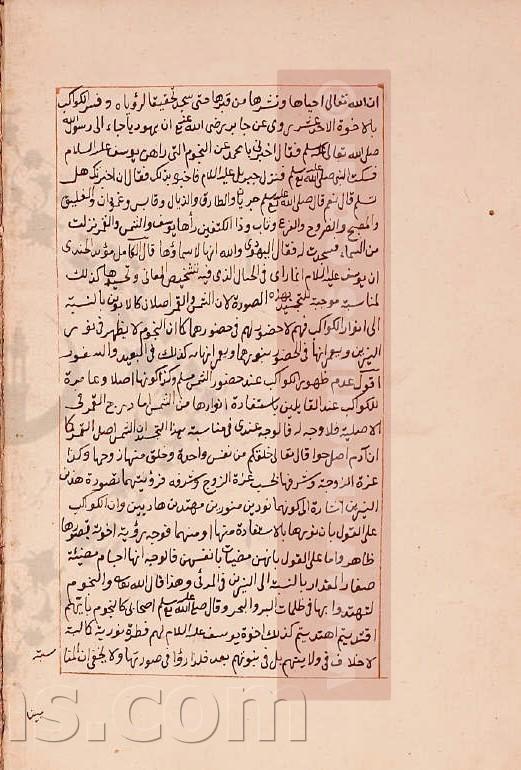 ان الله تعالى احياها ونشرها من قبرها حتى سجد تحقيقا لرؤياه وفسر الكواكب
بالاخوة الاحد عشر روى عن جابر رضى الله عنه ان يهوديا جاء الى رسول الله
صلى الله تعالى عليه وسلم فقال اخبرنى يا محمد عن النجوم التى راهن يوسف عليه السلام
فسكت النبى صلى الله عليه وسلم فنزل جبريل عليه السلام فاخبره بذلك فقال ان اخبرتك هل
تسلم قال نعم قال صلى الله عليه وسلم جريان والطارق والذيال وقابس وعمودان والفليق
والمصبح والضروح والفرغ ووثاب وذا الكتفين رأها يوسف والشمس والقمر نزلت
من السماء فسجدت له فقال اليهودى والله انها لاسماؤها قال الكامل مؤيد الجندى
ان يوسف عليه السلام انما راى فى الخيال الذى فيه تشخيص المعانى وتجسيدها كذلك
لمناسبة موجبة للتجسيد بهذه الصورة لان الشمس والقمر اصلان كالابوين بالنسبة
الى انوار الكواكب فهم لا حضور لهم فى حضورهما كما ان النجوم لا يظهر فى نور
النيرين
اقول عدم ظهور الكواكب عند حضور الشمس مسلم وكذا كونها اصلا
للكواكب عند القايلين باستفادة انوارها من الشمس
الاصلية فلا وجه له فالوجه عندى فى مناسبة هذا التجسيد ان الشمس اصل القمر كما
ان ادم اصل حوا قال تعالى خلقكم من نفس واحدة وخلق منها زوجها وكذا
عزة الزوجة وشرفها بحسب عزة الزوج وشرفه فرؤيتهما بصورة هذين
النيرين اشارة الى كونهما نورين منورين مهتدين هاديين وان الكواكب
على القول بان نورها بالاستفادة منها او منهما فوجه رؤية اخوته بصورها
ظاهر واما على القول بانهن مضيات بانفسهن فالوجه انها اجسام مضيئة
صغار المقدار بالنسبة الى النيرين فى المرئى وهذا قال الله تعالى والنجوم
لتهتدوا بها فى ظلمات البر والبحر وقال صلى الله عليه وسلم اصحابى كالنجوم بايهم
اقتديتم اهتديتم كذلك اخوة يوسف عليه السلام لهم فطرة نورية كاملة
لا خلاف فى ولايتهم بل فى نبوتهم بعد فلذا رؤا فى صورتها ولا يخفى ان المنا
سبة
بينها
ns.com